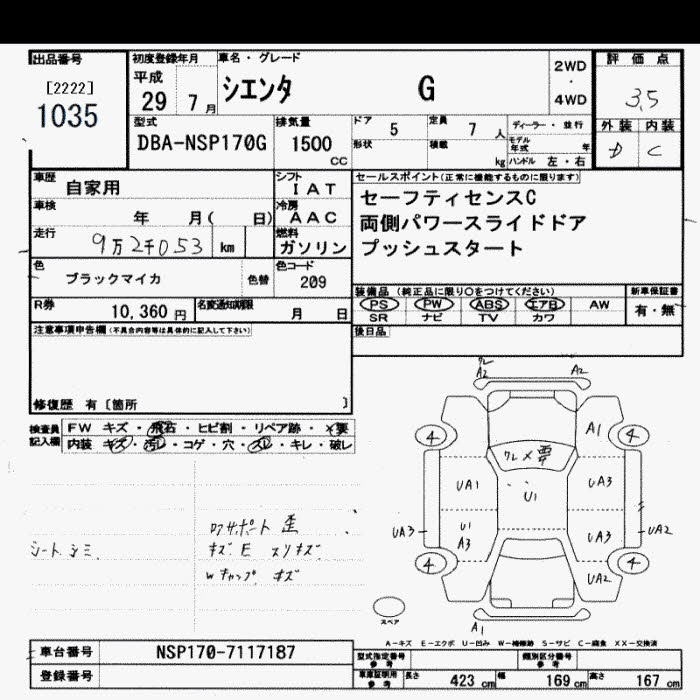 出品番号
[2222]
1035
初度登録年月
平成
29 7 月
車名・グレード
シエンタ G
2WD
・
4WD
評価点
3.5
外装 内装
D C
型式
DBA-NSP170G
排気量
1500
CC
ドア 5
定員 7 人
ディーラー・並行
形状
積載 kg
モデル年式 年
ハンドル 左・右
車歴 自家用
シフト
IAT
車検 年 月( 日)
冷房
AAC
走行 9万2千053 km
燃料
ガソリン
セールスポイント(正常に機能するものに限ります)
セーフティセンスC
両側パワースライドドア
プッシュスタート
色 ブラックマイカ 色替
色コード
209
装備品 (純正品に限り○をつけてください)
PS PW ABS エアB AW
SR ナビ TV カワ
新車保証書
有・無
R券 10,360 円
名変通知期限 月 日
後日品
注意事項申告欄(不具合内容等は具体的に記入して下さい)
修復歴 有〔箇所 〕
検査員記入欄
FW キズ・飛石・ヒビ割・リペア跡・×要
内装 キズ・汚レ・コゲ・穴・スレ・キレ・破レ
シートシミ
歪
キズ E スリキズ
Wキャップ キズ
A2 A2
4 4
A1
ワレ × 要
UA1 U1 UA3
UA3 U1 A3 UA3 UA2
4 4
UA2
スペア
A1
A-キズ E-エクボ U-凹み W-補修跡 S-サビ C-腐食 XX-交換済
車台番号 NSP170-7117187
登録番号
型式指定番号
参考
類別区分番号
参考
車庫証明用
参考
長さ 423 cm 幅 169 cm 高さ 167 cm